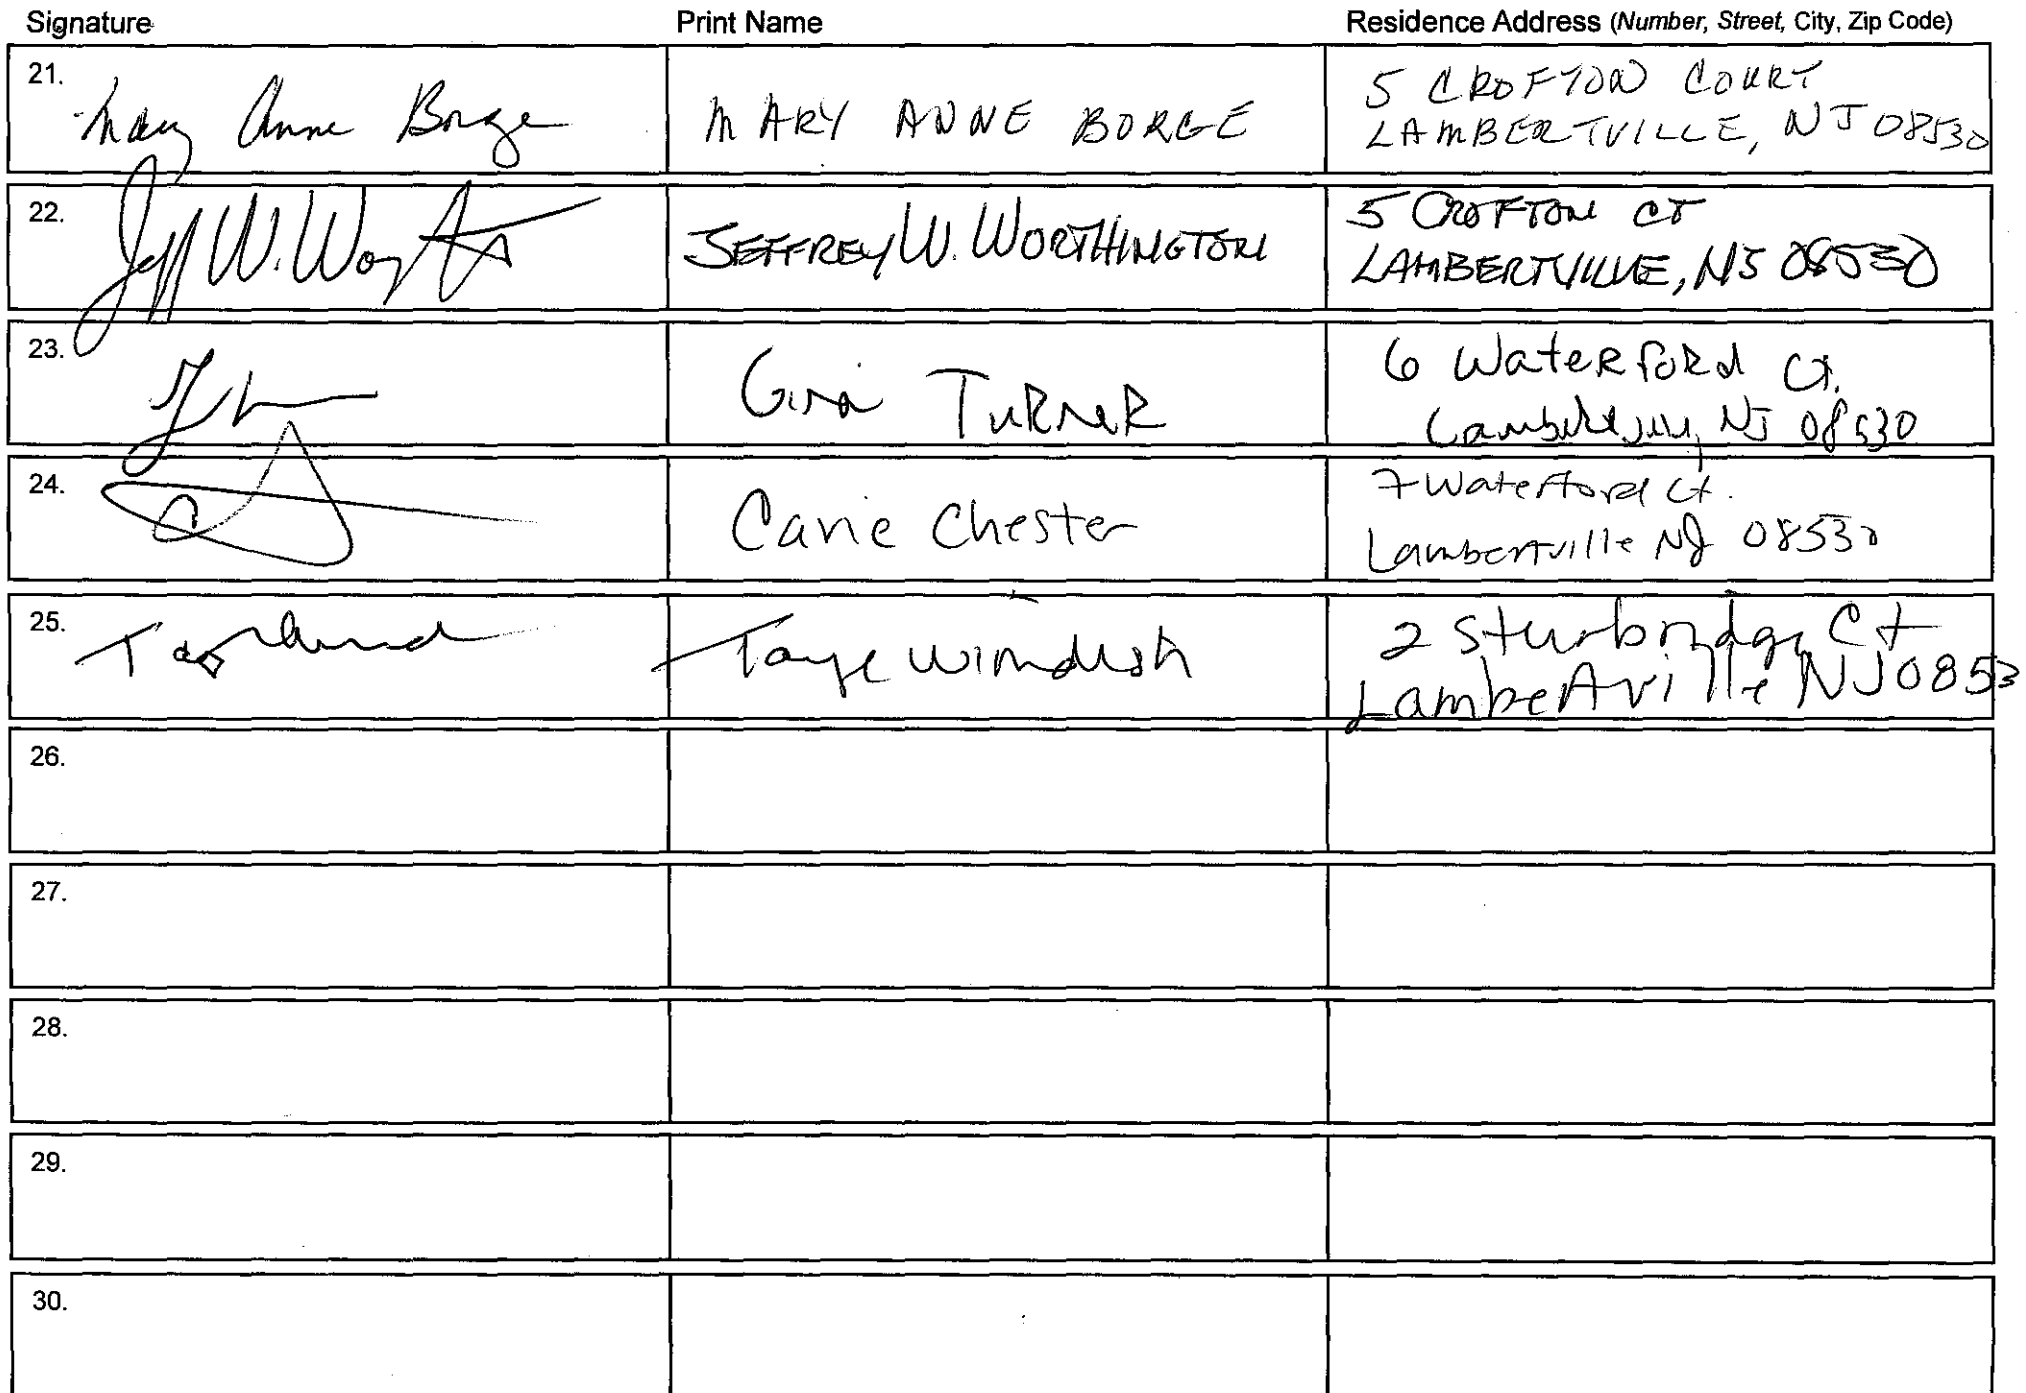 Signature Print Name Residence Address (Number, Street, City, Zip Code)
21. Mary Anne Borge MARY ANNE BORGE 5 CROFTON COURT
LAMBERTVILLE, NJ 08530
22. Jeff W. JEFFREY W. WORTHINGTON 5 CROFTON CT
LAMBERTVILLE, NJ 08530
23. Gina TURNER 6 Waterford Ct.
Lambertville, NJ 08530
24. Carie Chester 7 Waterford Ct.
Lambertville NJ 08530
25. 2 Sturbridge Ct
Lambertville NJ 0853
26.
27.
28.
29.
30.